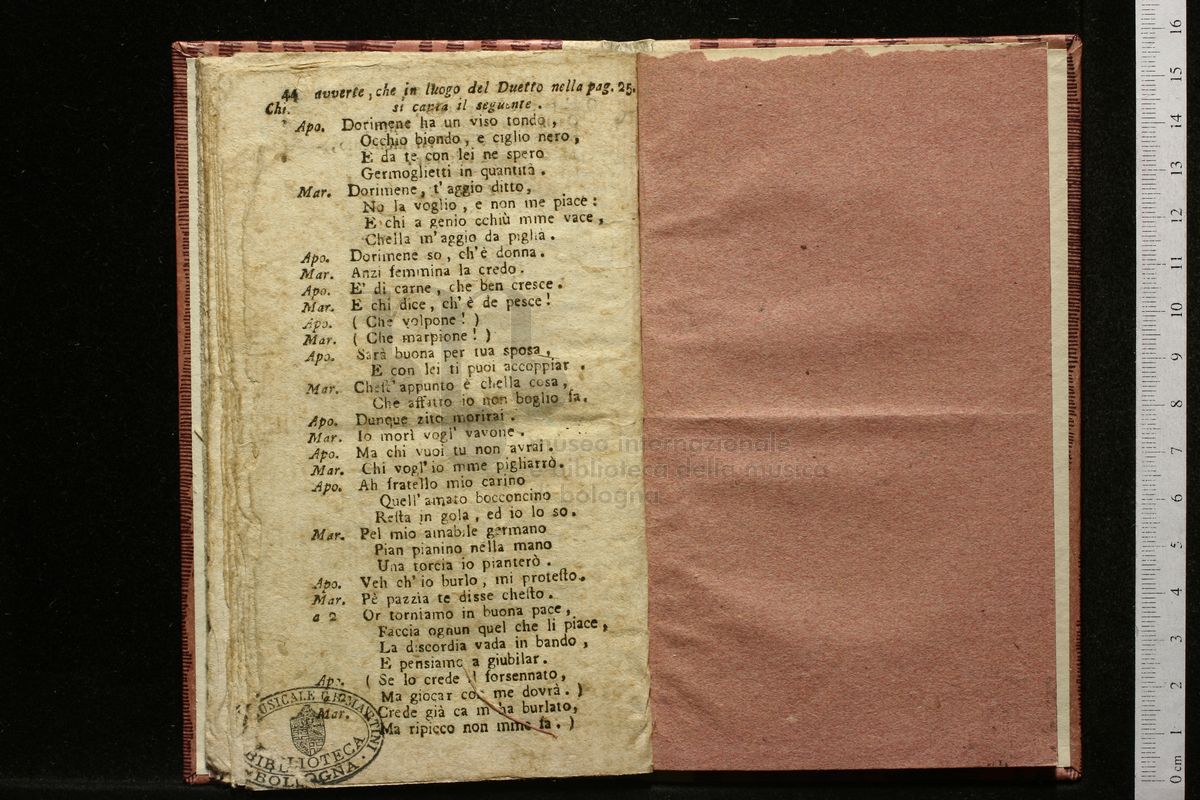 44 avverte, che in luogo del Duetto nella pag. 25.
Chi. si canta il seguente.
Apo. Dorimene ha un viso tondo,
Occhio biondo, e ciglio nero,
E da te con lei ne spero
Germoglietti in quantità.
Mar. Dorimene, t'aggio ditto,
No la voglio, e non me piace:
E chi a genio cchiù mme vace,
Chella m'aggio da piglià.
Apo. Dorimene so, ch'è donna.
Mar. Anzi femmina la credo.
Apo. E' di carne, che ben cresce.
Mar. E chi dice, ch'è de pesce!
Apo. (Che volpone!)
Mar. (Che marpione!)
Apo. Sarà buona per tua sposa,
E con lei ti puoi accoppiar.
Mar. Chest'appunto è chella cosa,
Che affatto io non boglio fa.
Apo. Dunque zito morirai.
Mar. Io morì vogl' vavone.
Apo. Ma chi vuoi tu non avrai.
Mar. Chi vogl'io mme pigliarrò.
Apo. Ah fratello mio carino
Quell'amato bocconcino
Resta in gola, ed io lo so.
Mar. Pel mio amabile germano
Pian pianino nella mano
Una torcia io pianterò.
Apo. Veh ch'io burlo, mi protesto.
Mar. Pè pazzia te disse chesto.
a 2 Or torniamo in buona pace,
Faccia ognun quel che li piace,
La discordia vada in bando,
E pensiamo a giubilar.
Apo. (Se lo crede il forsennato,
Ma giocar con me dovrà.)
Mar. (Crede già ca m'ha burlato,
Ma ripicco non mme fa.)
MUSICALE G.B. MARTINI
BIBLIOTECA
BOLOGNA
museo internazionale
e biblioteca della musica
bologna
0 cm 1 2 3 4 5 6 7 8 9 10 11 12 13 14 15 16